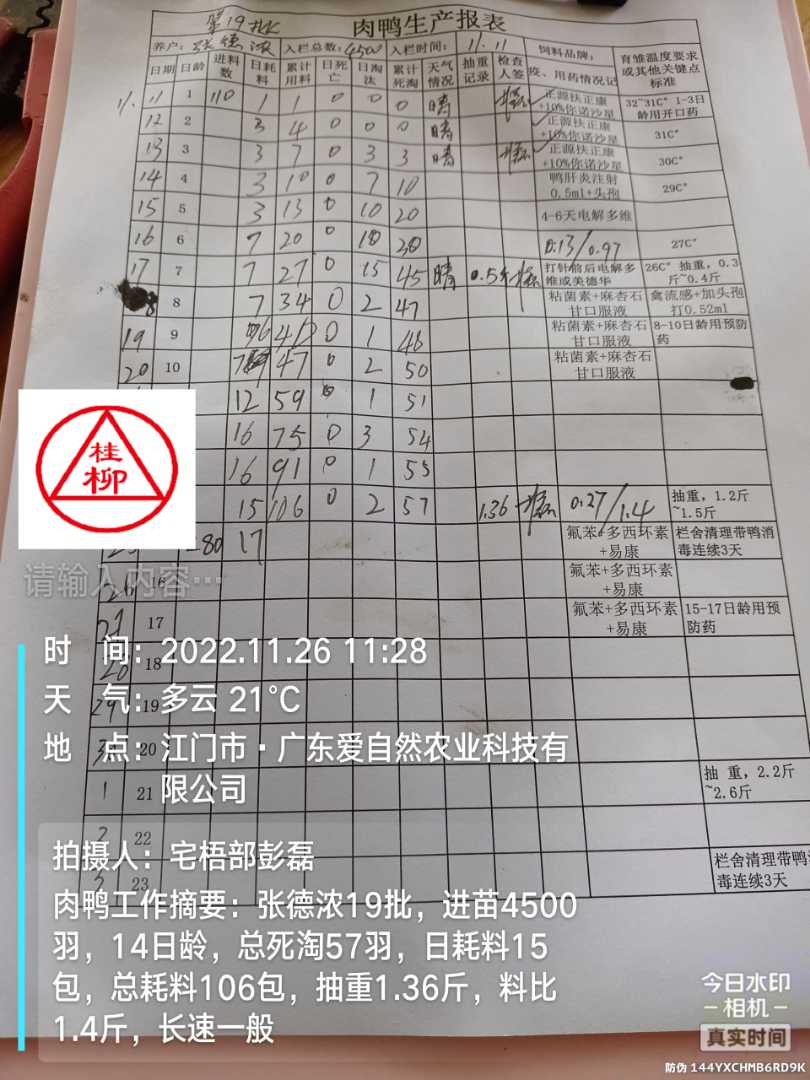 第19批
肉鸭生产报表
养户: 张德浓 入栏总数: 4500 入栏时间: 11.11 饲料品牌:
日期 日龄 进料数 日耗料 累计用料 日死亡 日淘汰 累计死淘 天气情况 抽重记录 检查人签 疫、用药情况记 育雏温度要求或其他关键点标准
11.11 1 110 1 1 0 0 0 晴 正源扶正康+10%你诺沙星 32~31C° 1-3日龄用开口药
12 2 3 4 0 0 0 晴 正源扶正康+10%你诺沙星 31C°
13 3 3 7 0 3 3 晴 正源扶正康+10%你诺沙星 30C°
14 4 3 10 0 7 10 鸭肝炎注射0.5ml+头孢 29C°
15 5 3 13 0 10 20 4-6天电解多维
16 6 7 20 0 10 30 0.13/0.97 27C°
17 7 7 27 0 15 45 晴 0.5斤 打针前后电解多维或美德华 26C° 抽重,0.3斤~0.4斤
8 8 7 34 0 2 47 粘菌素+麻杏石甘口服液 禽流感+加头孢打0.52ml
19 9 0 1 粘菌素+麻杏石甘口服液 8-10日龄用预防药
20 10 47 0 2 50 粘菌素+麻杏石甘口服液
12 59 0 1 51
16 75 0 3 54
16 91 0 1 55
15 106 0 2 57 1.36 0.27/1.4 抽重,1.2斤~1.5斤
80 17 氟苯+多西环素+易康 栏舍清理带鸭消毒连续3天
26 16 氟苯+多西环素+易康
27 17 氟苯+多西环素+易康 15-17日龄用预防药
18
29 19
20
1 21 抽 重,2.2斤~2.6斤
2 22
3 23 栏舍清理带鸭消毒连续3天
桂柳
请输入内容…
时 间: 2022.11.26 11:28
天 气: 多云 21℃
地 点: 江门市·广东爱自然农业科技有
限公司
拍摄人: 宅梧部彭磊
肉鸭工作摘要: 张德浓19批，进苗4500
羽，14日龄，总死淘57羽，日耗料15
包，总耗料106包，抽重1.36斤，料比
1.4斤，长速一般
今日水印
相机
真实时间
防伪 144YXCHMB6RD9K